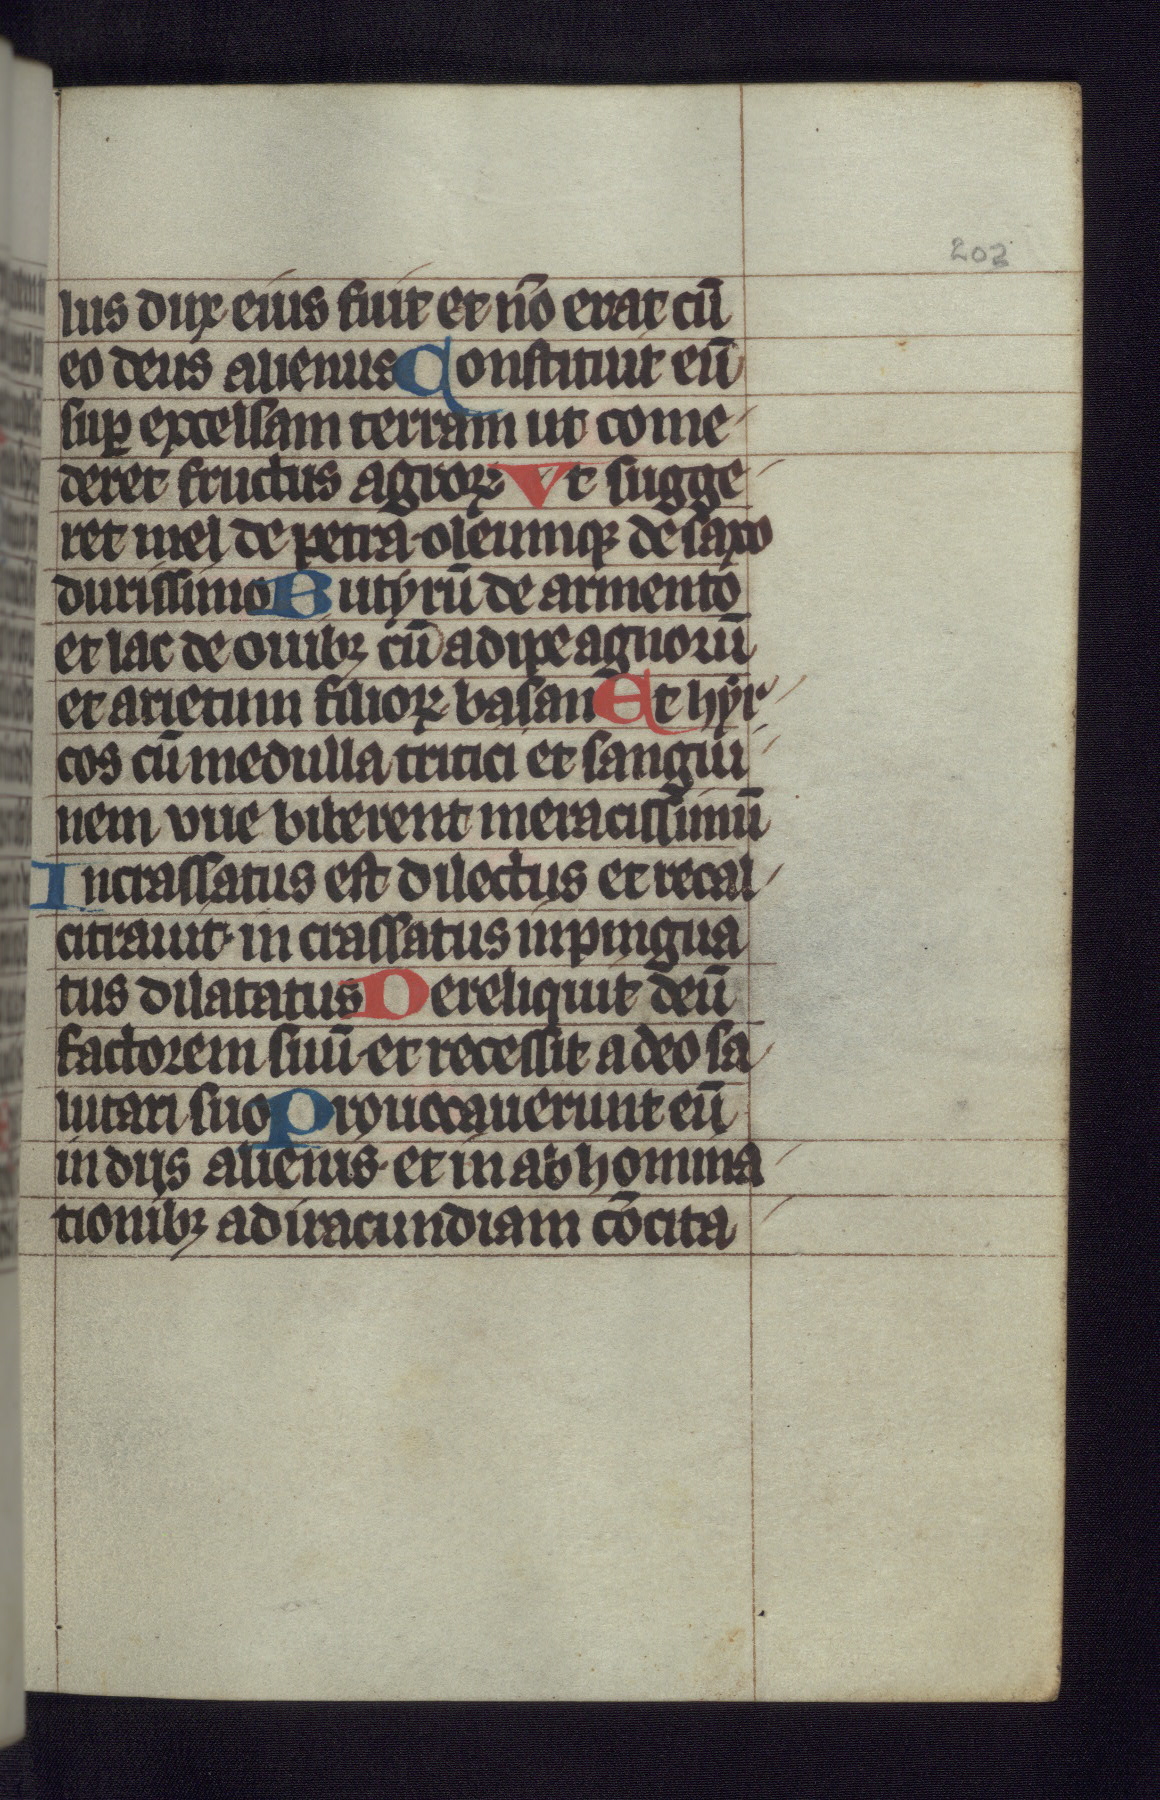 202
lus dux eius fuit et nō erat cū
eo deus alienus Constituit eū
suꝑ excelsam terram ut come
deret fructus agroꝝ Vt sugge
ret mel de petra·oleumqꝫ de saxo
durissimo Butyrū de armento
et lac de ouibꝫ cū adipe agnorū
et arietum filioꝝ basan Et hyr
cos cū medulla tritici et sangui
nem vue biberent meracissimū
Incrassatus est dilectus et recal
citrauit· in crassatus inpingua
tus dilatatus Dereliquit deū
factorem suū·et recessit a deo sa
lutari suo Prouocauerunt eū
in dijs alienis·et in abhomina
tionibꝫ ad iracundiam cōcita